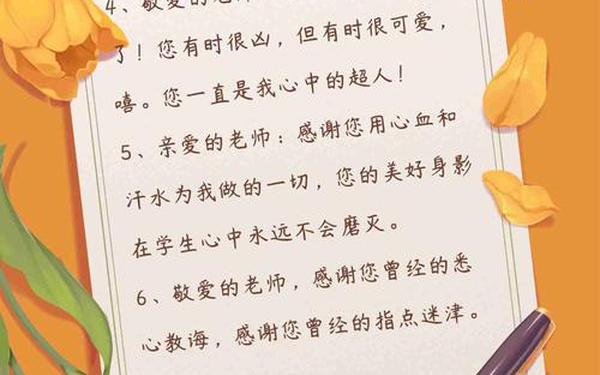 4、敬爱的老师
了！您有时很凶，但有时很可爱，
嘻。您一直是我心中的超人！
5、亲爱的老师：感谢您用心血和
汗水为我做的一切，您的美好身影
在学生心中永远不会磨灭。
6、敬爱的老师，感谢您曾经的悉
心教诲，感谢您曾经的指点迷津。